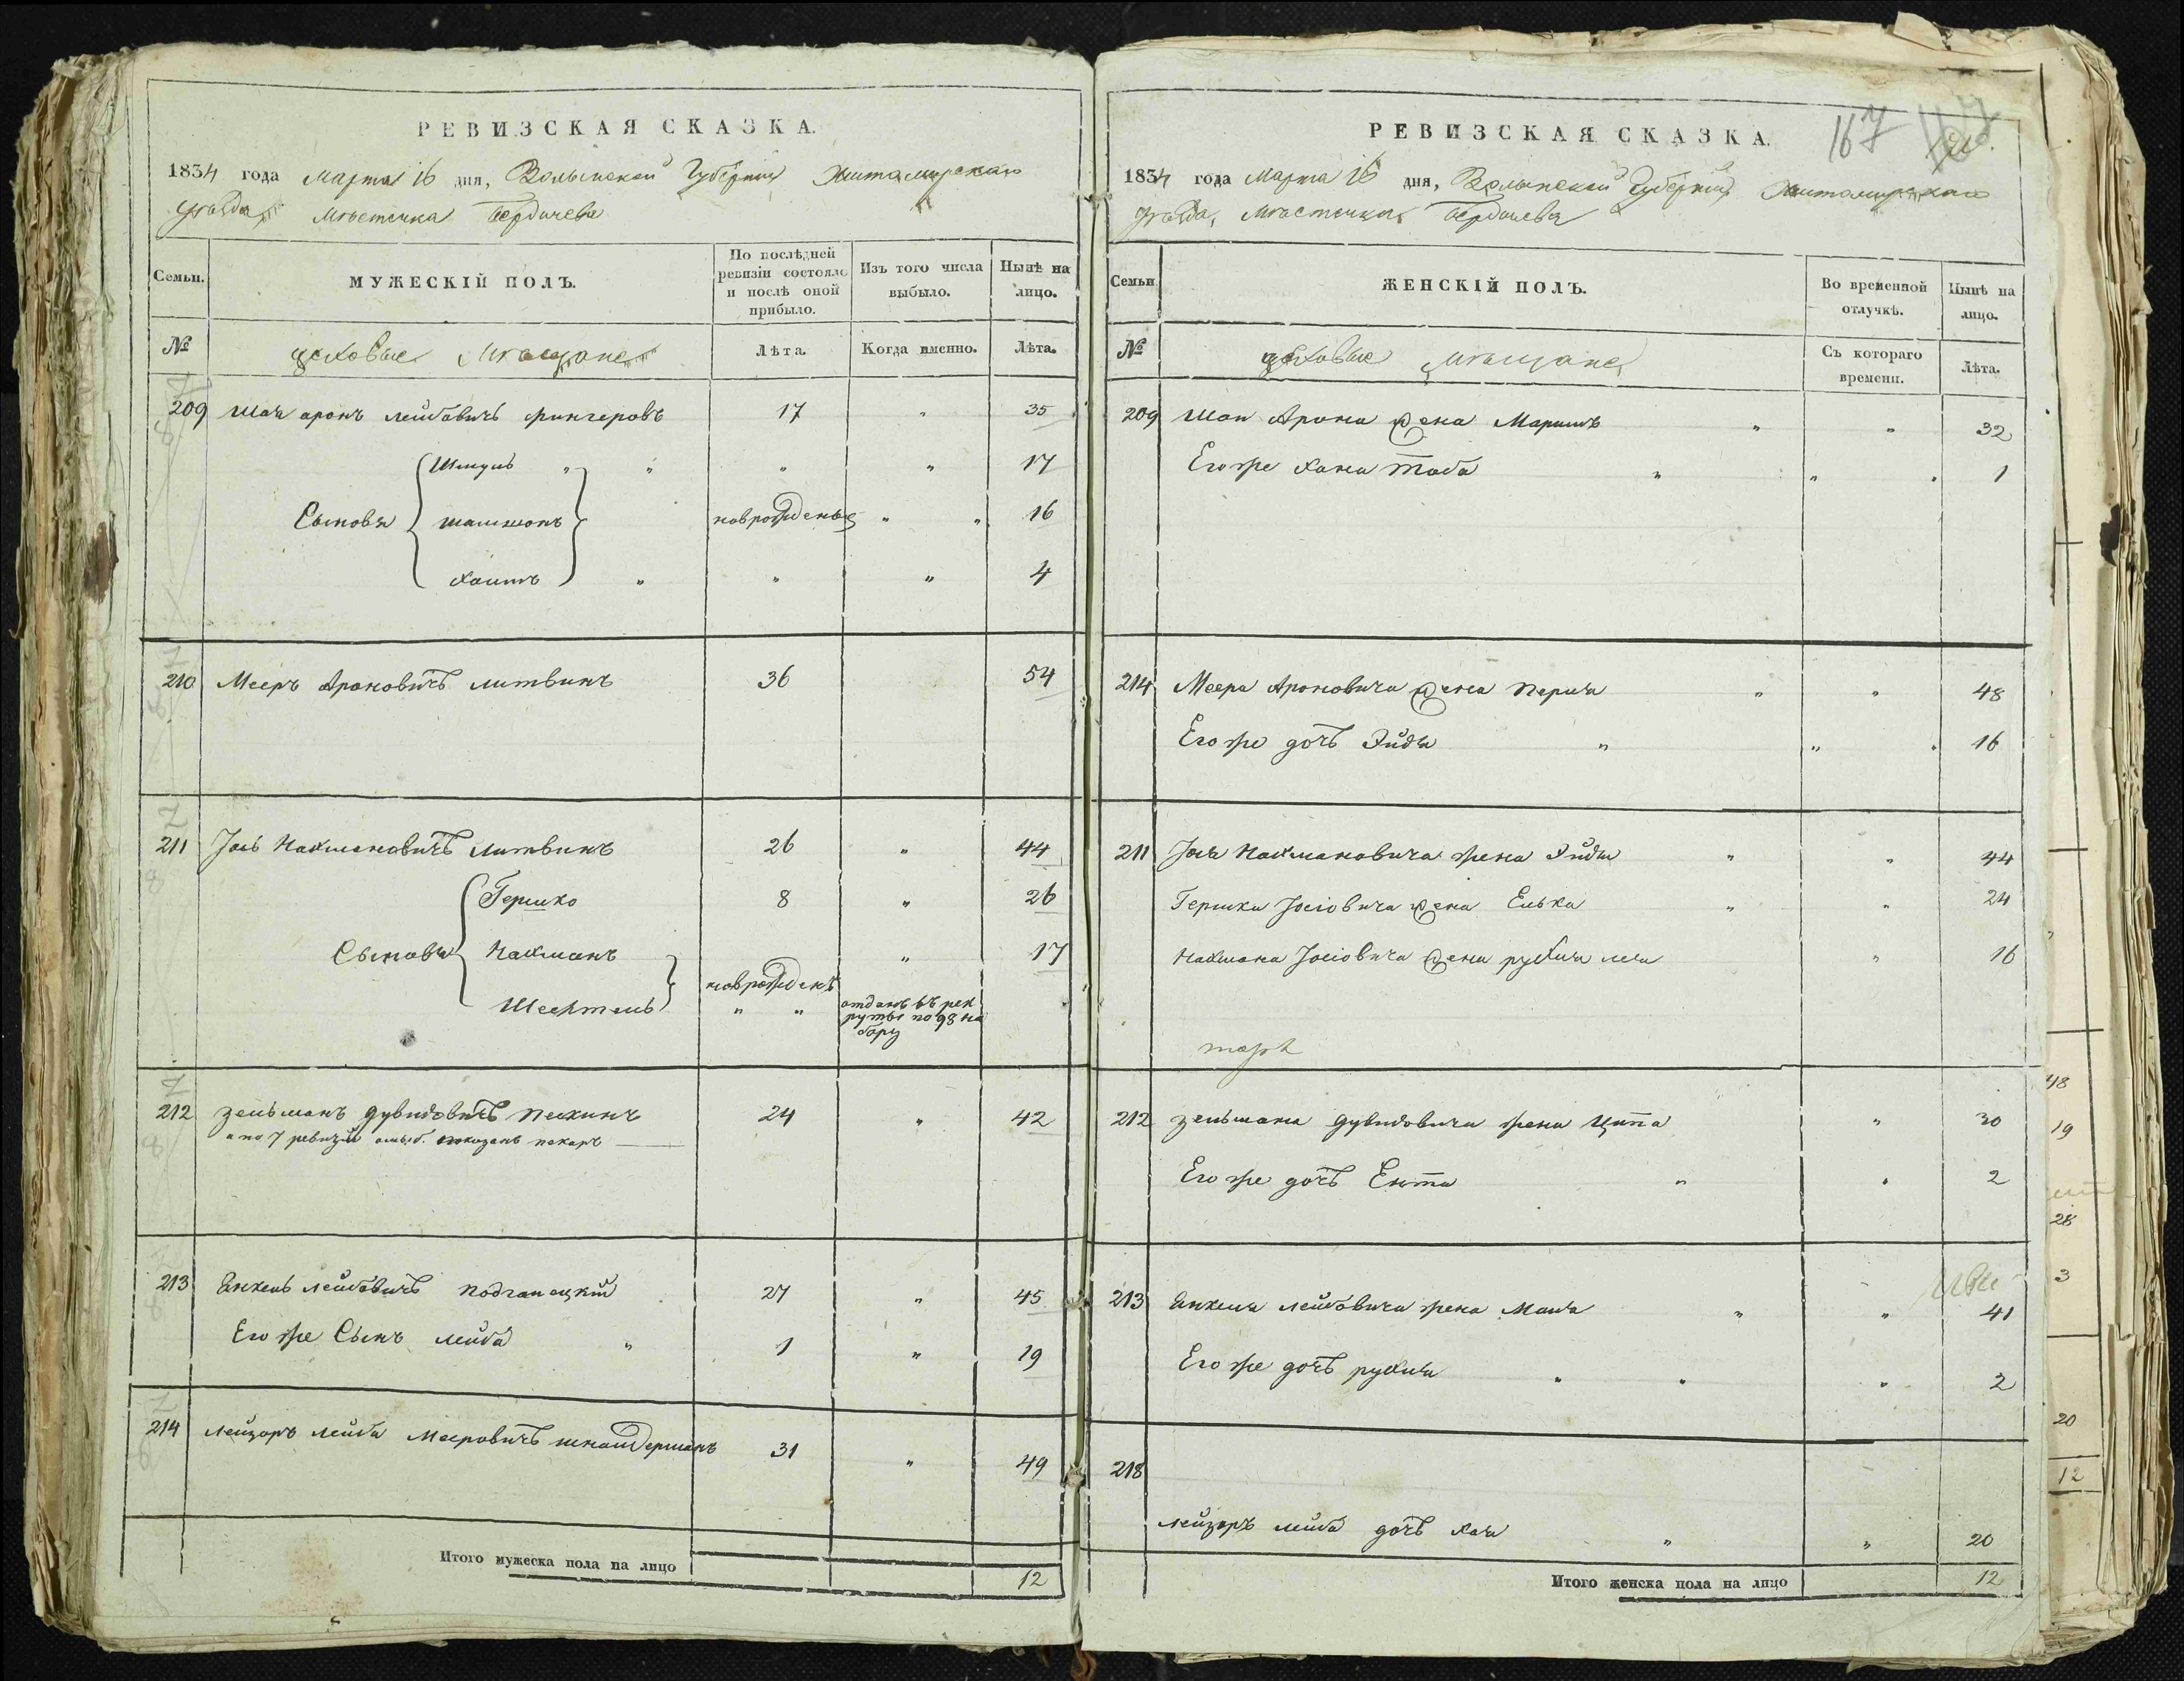 РЕВИЗСКАЯ СКАЗКА.
1834 года Марта 16 дня, Волынской Губерніи Житомирскаго
уѣзда, Мѣстечка Бердичева
Семьи.
МУЖЕСКІЙ ПОЛЪ.
По послѣдней ревизіи состояло и послѣ оной прибыло.
Изъ того числа выбыло.
Нынѣ на лицо.
№ цеховые Мѣщане Лѣта. Когда именно. Лѣта.
209 Шая аронъ лейбовичъ фингеровъ 17 " 35
Шмуль " " " " 17
Сыновья шамшонъ новрожденые " " 16
Хаимъ " " " 4
210 Мееръ Ароновичъ литвинъ 36 54
211 Іось Нахмановичъ литвинъ 26 " 44
Гершко 8 " 26
Сыновья Нахманъ " 17
новрожденъ
Шехтель " " отданъ въ рек
руты по 98 на
бору
212 зельманъ дувидовичъ пекинъ 24 " 42
а по 7 ревизіи показанъ пекаръ
213 Янкель лейбовичъ подгаецкій 27 " 45
Его же Сынъ лейба " 1 " 19
214 лейзоръ лейба Мееровичъ шнайдерманъ 31 " 49
Итого мужеска пола на лицо 12
167
РЕВИЗСКАЯ СКАЗКА.
1834 года Марта 16 дня, Волынской Губерніи Житомирскаго
уѣзда, Мѣстечка Бердичева
Семьи
ЖЕНСКІЙ ПОЛЪ.
Во временной отлучкѣ.
Нынѣ на лицо.
№ цеховые мѣщане Съ котораго времени. Лѣта.
209 Шаи Арона жена Маримъ " " 32
Его же хана тоба " " " 1
214 Меера Ароновича жена перля " " 48
Его же дочь Эйдя " " " 16
211 Іося Нахмановича жена Эйдя " " 44
Гершки Іосіовича жена Елька " " 24
Нахмана Іосіовича жена рухля лея " 16
212 зельмана дувидовича жена Ципа " 30
Его же дочь Ента " " 2
213 Янкеля лейбовича жена Маля " " 41
Его же дочь рухля " " " 2
218
лейзоръ лейба дочь хая " " 20
Итого женска пола на лицо 12
48
19
28
3
20
12